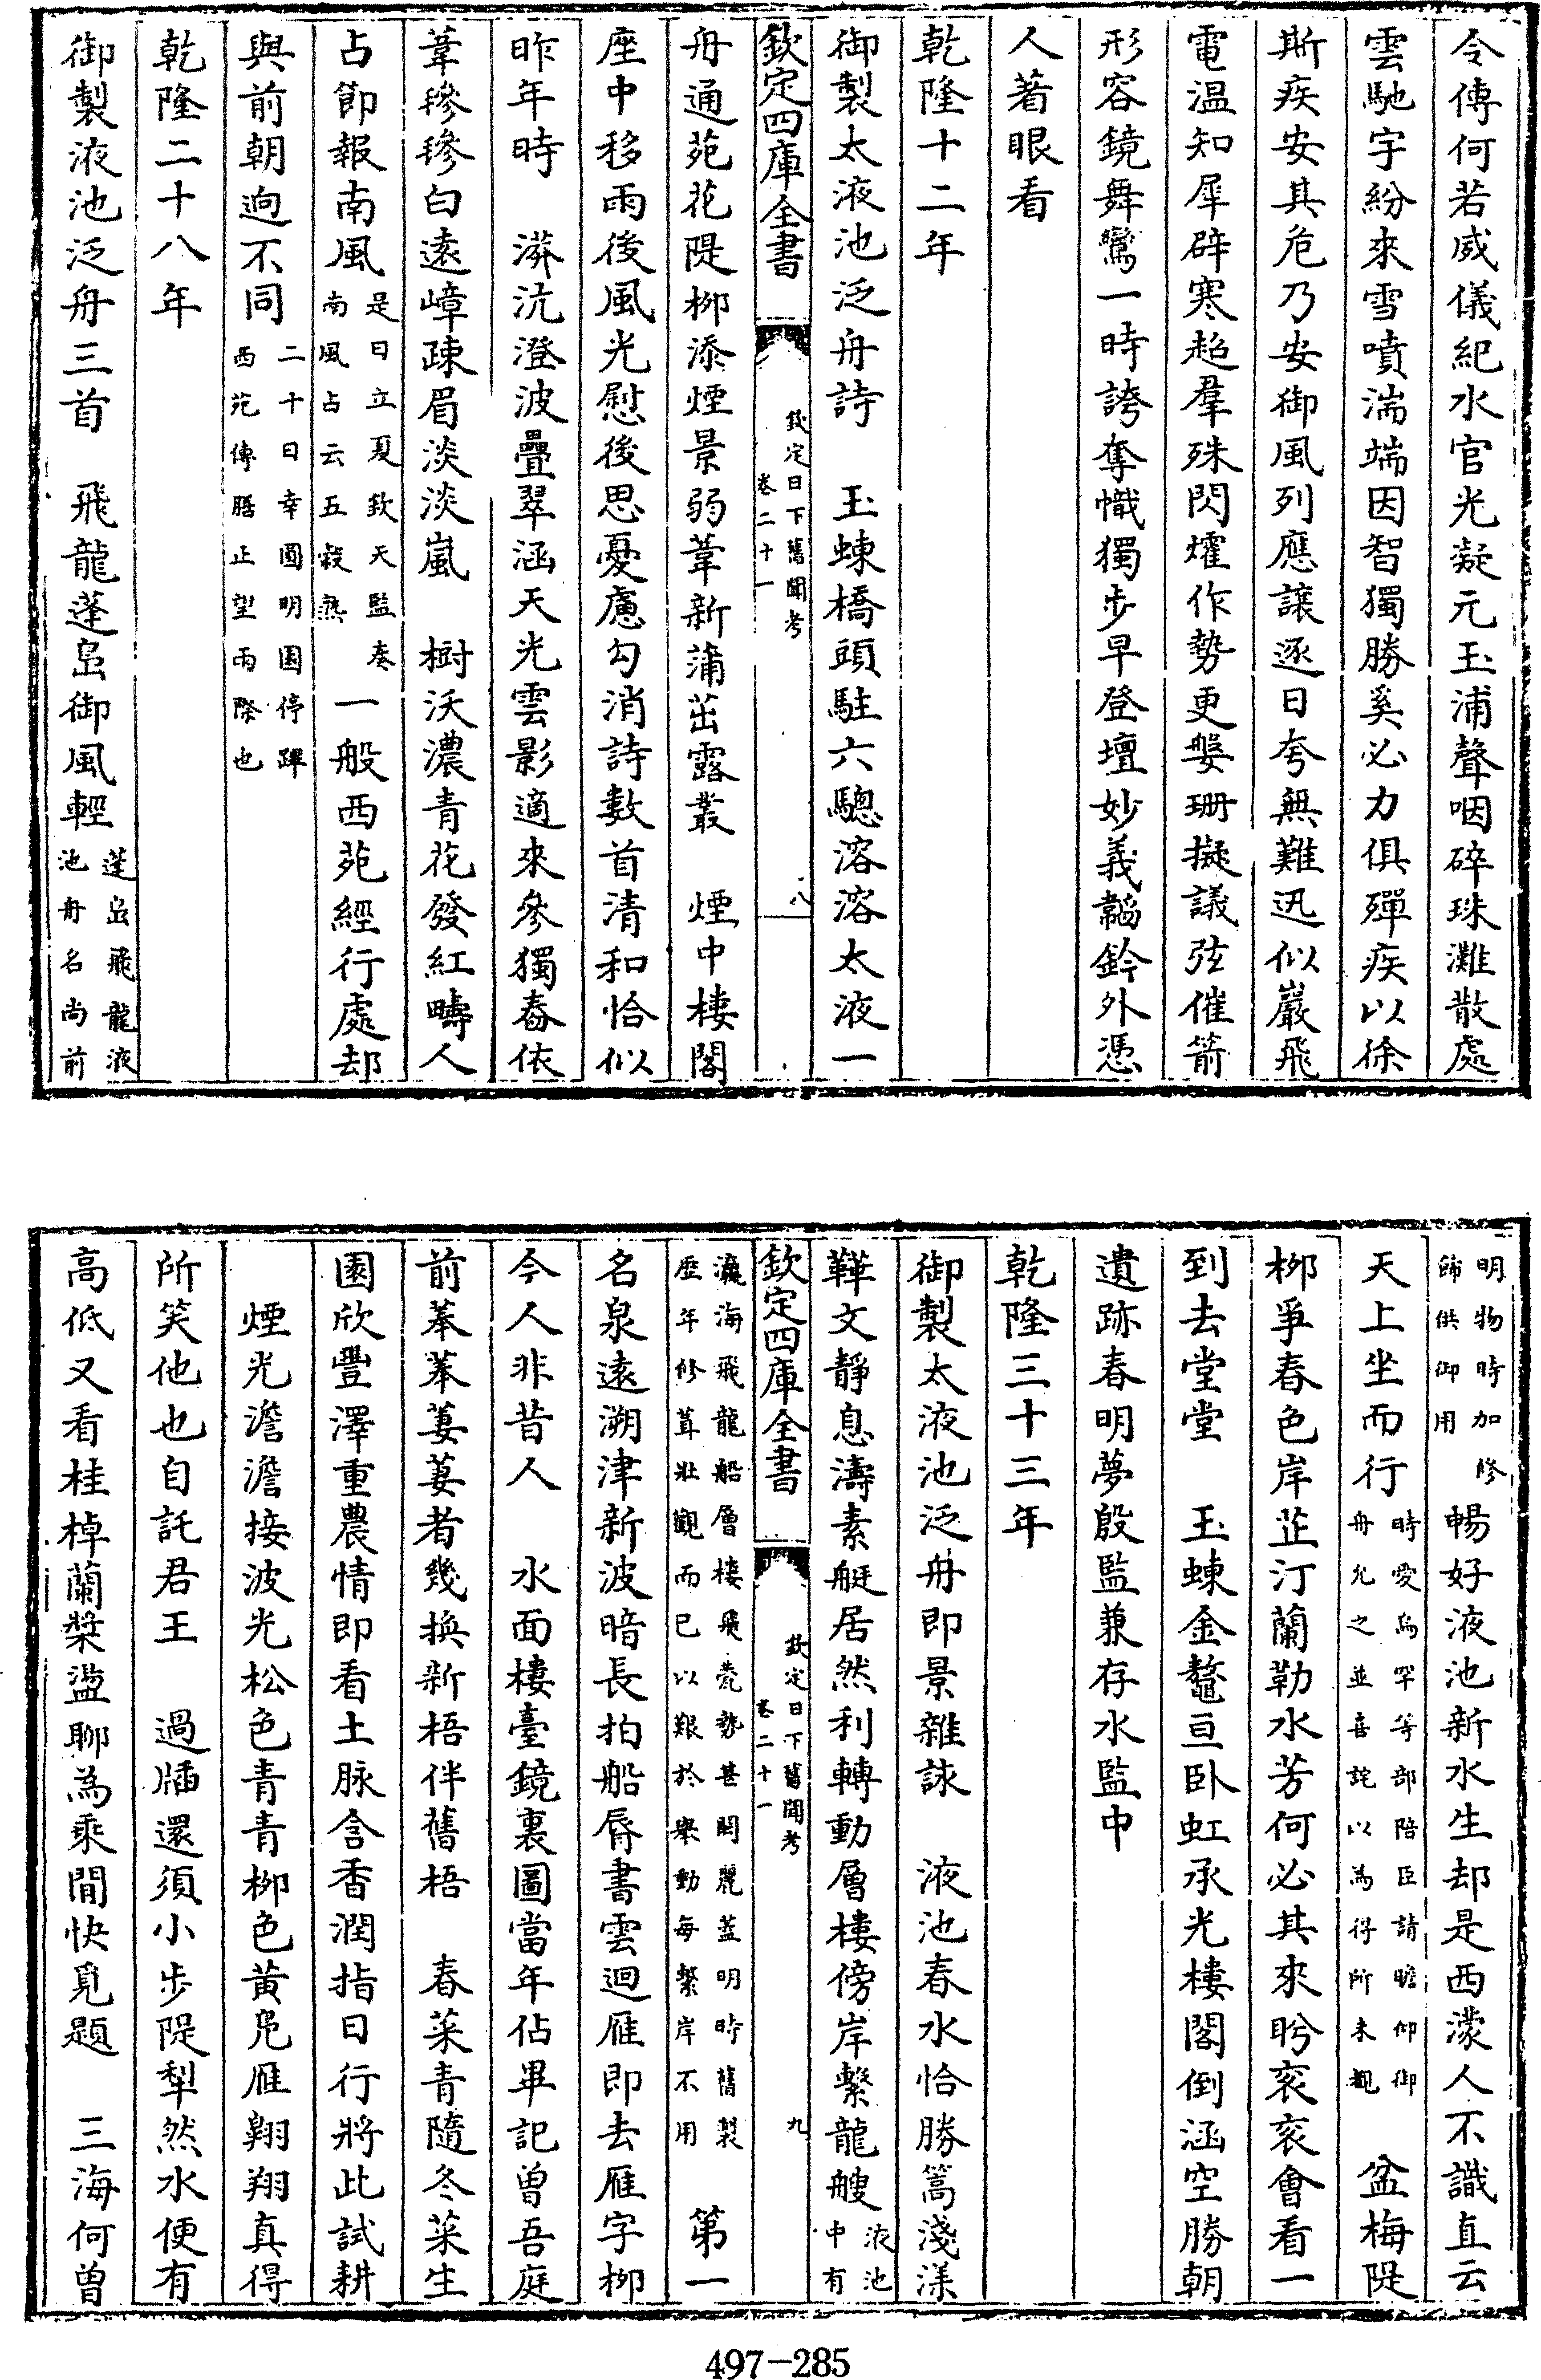 令傳何若威儀紀水官光凝元玉浦聲咽碎珠灘散處
雲馳宇紛來雪噴湍端因智獨勝奚必力俱殫疾以徐
斯疾安其危乃安御風列應讓逐日夸無難迅似巖飛
電温知犀辟寒超羣殊閃爚作勢更媻珊擬議弦催箭
形容鏡舞鸞一時誇奪幟獨步早登壇妙義韜鈐外憑
人著眼看
乾隆十二年
御製太液池泛舟詩　玉蝀橋頭駐六驄溶溶太液一
欽定四庫全書　欽定日下舊聞考卷二十一　八
舟通苑花隄柳添煙景弱葦新蒲茁露叢　煙中樓閣
座中移雨後風光慰後思憂慮勾消詩數首清和恰似
昨年時　漭沆澄波疊翠涵天光雲影適來參獨舂依
葦毿毿白遠嶂疎眉淡淡嵐　樹沃濃青花發紅疇人
占節報南風是日立夏欽天監奏南風占云五穀熟一般西苑經行處却
與前朝逈不同二十日幸圓明園停蹕西苑傳膳正望雨際也
乾隆二十八年
御製液池泛舟三首　飛龍蓬島御風輕蓬島飛龍液池舟名尚前
明物時加修飾供御用暢好液池新水生却是西濛人不識直云
天上坐而行時愛烏罕等部陪臣請瞻仰御舟允之並喜詫以為得所未觀　盆梅隄
柳爭春色岸芷汀蘭勒水芳何必其來盻衮衮會看一
到去堂堂　玉蝀金鼇亘卧虹承光樓閣倒涵空勝朝
遺跡春明夢殷監兼存水監中
乾隆三十三年
御製太液池泛舟即景雜詠　液池春水恰勝篙淺漾
鞾文靜息濤素艇居然利轉動層樓傍岸繫龍艘液池中有
欽定四庫全書　欽定日下舊聞考卷二十一　九
瀛海飛龍船層樓飛甍勢甚閎麗葢明時舊製歴年修葺壯觀而已以艱於舉動每繫岸不用　第一
名泉遠溯津新波暗長拍船脣書雲迴雁即去雁字柳
今人非昔人　水面樓臺鏡裏圖當年佔畢記曾吾庭
前菶菶萋萋者幾換新梧伴舊梧　春菜青隨冬菜生
園欣豐澤重農情即看土脉含香潤指日行將此試耕
煙光澹澹接波光松色青青柳色黄鳬雁翺翔真得
所笑他也自託君王　過牐還須小步隄犁然水便有
高低又看桂棹蘭槳盪聊為乘閒快覓題　三海何曾
497-285